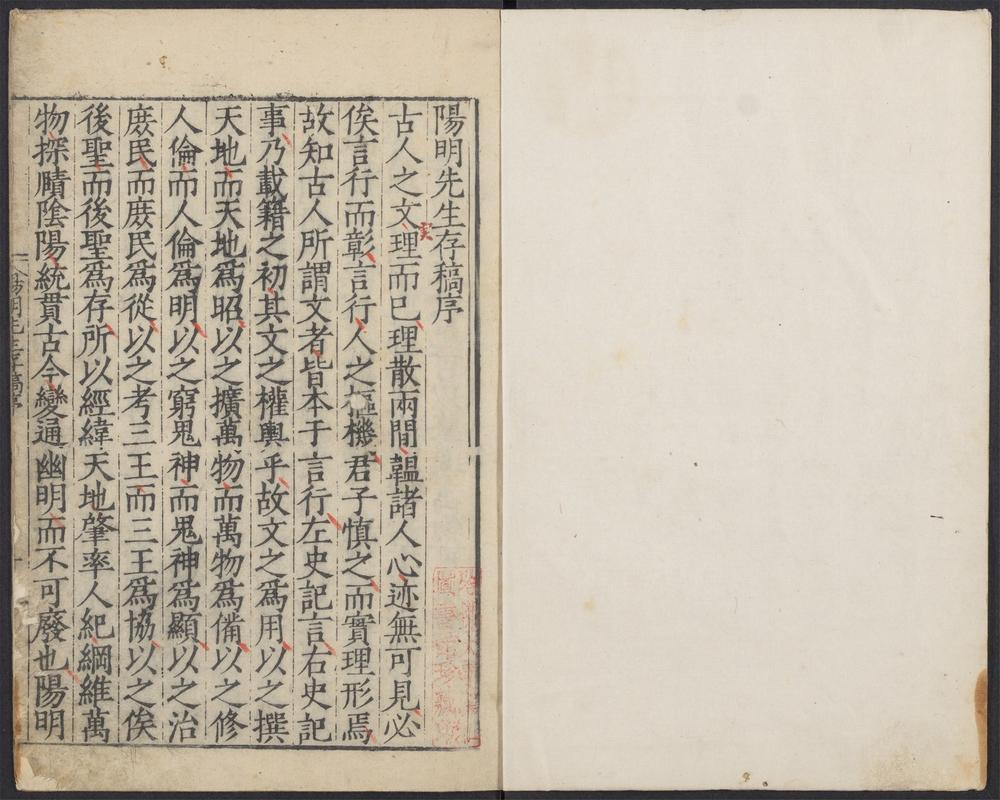 陽明先生存稿序
古人之文理而已理散兩間韞諸人心迹無可見必
俟言行而彰言行人之樞機君子慎之而實理形焉
故知古人所謂文者皆本于言行左史記言右史記
事乃載籍之初其文之權輿乎故文之爲用以之撰
天地而天地爲昭以之擴萬物而萬物爲備以之修
人倫而人倫爲明以之窮鬼神而鬼神爲顯以之治
庶民而庶民爲從以之考三王而三王爲協以之俟
後聖而後聖爲存所以經緯天地肇率人紀綱維萬
物探賾陰陽統貫古今變通幽明而不可廢也陽明
陽明先生存稿序
一